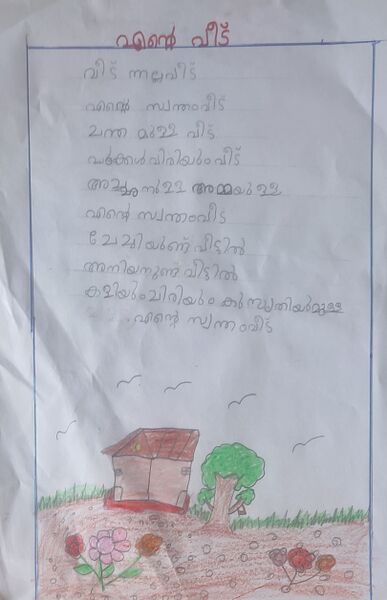 എന്റെ വീട്
വീട് നല്ലവീട്
എന്റെ സ്വന്തംവീട്
ചന്തമുള്ള വീട്
പൂക്കൾവിരിയുംവീട്
അച്ഛനുള്ള അമ്മയുള്ള
എന്റെ സ്വന്തംവീട്
ചേച്ചിയുണ്ട് വീട്ടിൽ
അനിയനുണ്ട് വീട്ടിൽ
കളിയുംചിരിയും കുസൃതിയുമുള്ള
എന്റെ സ്വന്തംവീട്